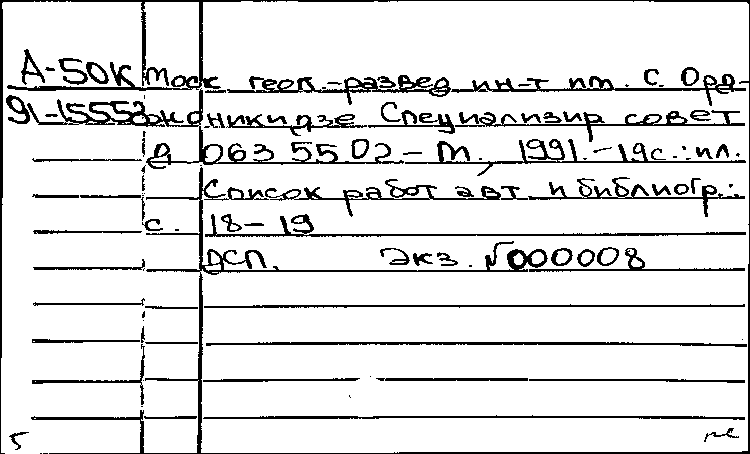 А-50К Моск. геол.-развед ин-т им. С. Орд-
91-15553 жоникидзе Специализир совет
Д 063 55 02 - М., 1991. - 19с.: ил.
Список работ авт и библиогр.:
с. 18-19
ДСП. Экз. №000008
5